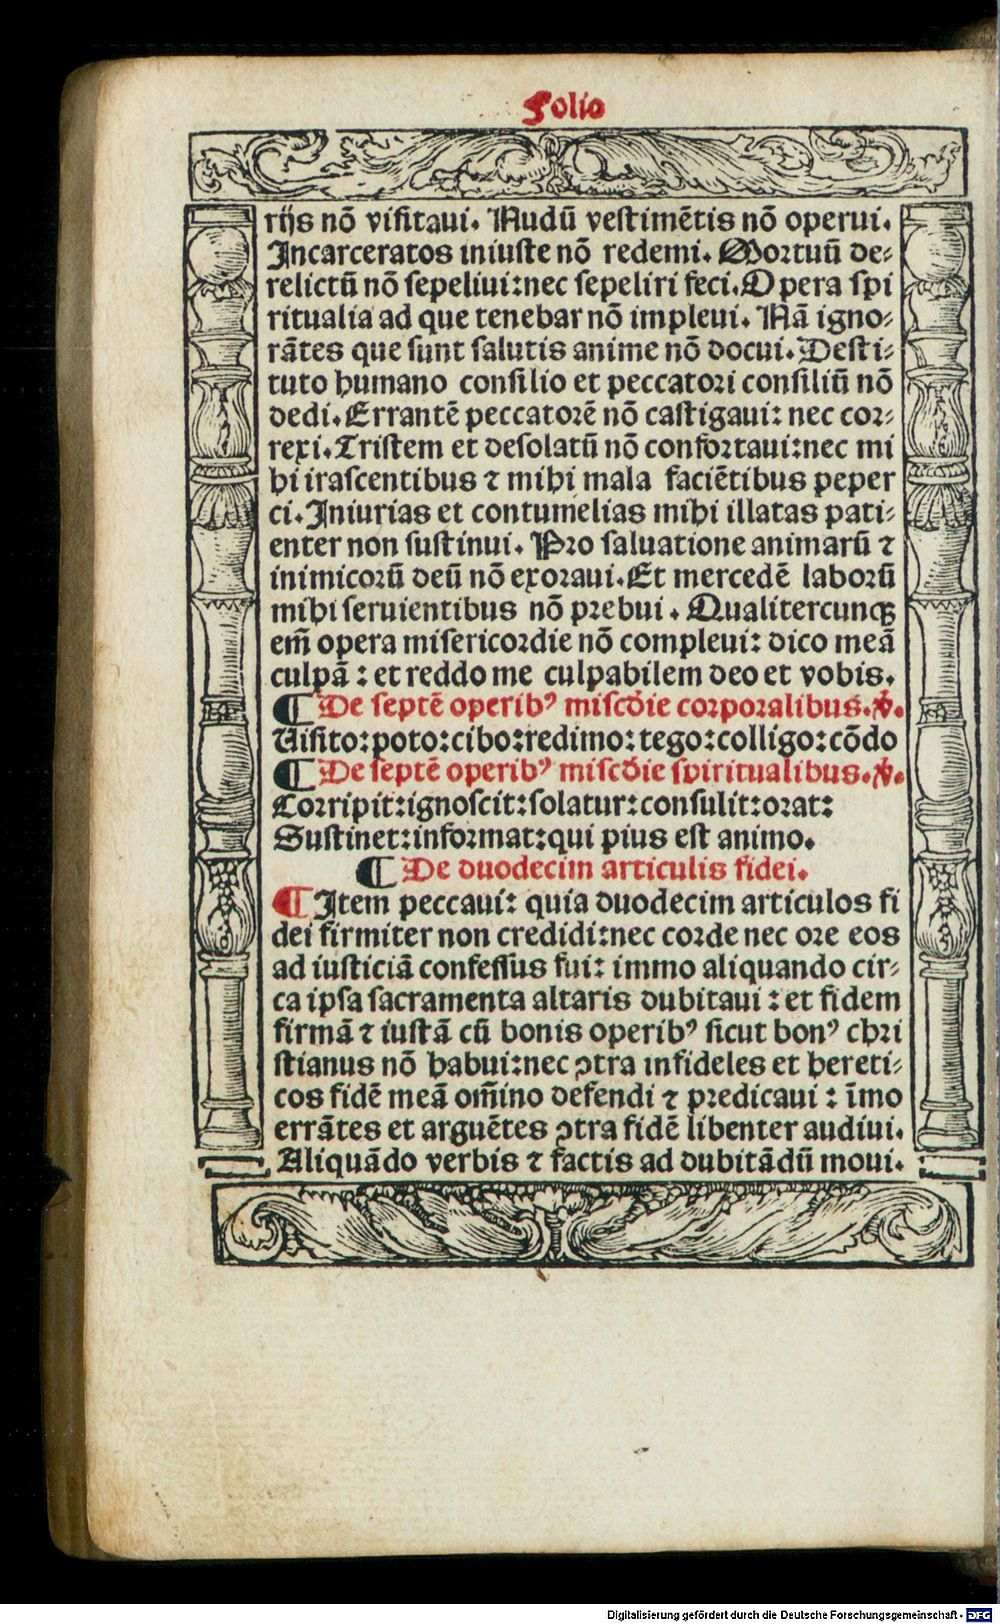 Folio
rijs nō visitaui. Nudū vestimētis nō operui.
Incarceratos iniuste nō redemi. Mortuū de⸗
relictū nō sepeliui: nec sepeliri feci. Opera spi
ritualia ad que tenebar nō impleui. Nā igno⸗
rātes que sunt salutis anime nō docui. Desti⸗
tuto humano consilio et peccatori consiliū nō
dedi. Errantē peccatorē nō castigaui: nec cor⸗
rexi. Tristem et desolatū nō confortaui: nec mi
hi irascentibus ⁊ mihi mala faciētibus peper
ci. Iniurias et contumelias mihi illatas pati⸗
enter non sustinui. Pro saluatione animarū ⁊
inimicorū deū nō exoraui. Et mercedē laborū
mihi seruientibus nō prebui. Qualitercunqꝫ
em̄ opera misericordie nō compleui: dico meā
culpā: et reddo me culpabilem deo et vobis.
¶ De septē operibꝰ miscd̄ie corporalibus. ꝟ.
Uisito: poto: cibo: redimo: tego: colligo: cōdo
¶ De septē operibꝰ miscd̄ie spiritualibus. ꝟ.
Corripit: ignoscit: solatur: consulit: orat:
Sustinet: informat: qui pius est animo.
¶ De duodecim articulis fidei.
¶ Item peccaui: quia duodecim articulos fi
dei firmiter non credidi: nec corde nec ore eos
ad iusticiā confessus fui: immo aliquando cir⸗
ca ipsa sacramenta altaris dubitaui: et fidem
firmā ⁊ iustā cū bonis operibꝰ sicut bonꝰ chri
stianus nō habui: nec ↄtra infideles et hereti⸗
cos fidē meā om̄ino defendi ⁊ predicaui: īmo
errātes et arguētes ↄtra fidē libenter audiui.
Aliquādo verbis ⁊ factis ad dubitādū moui.
Digitalisierung gefördert durch die Deutsche Forschungsgemeinschaft - DFG